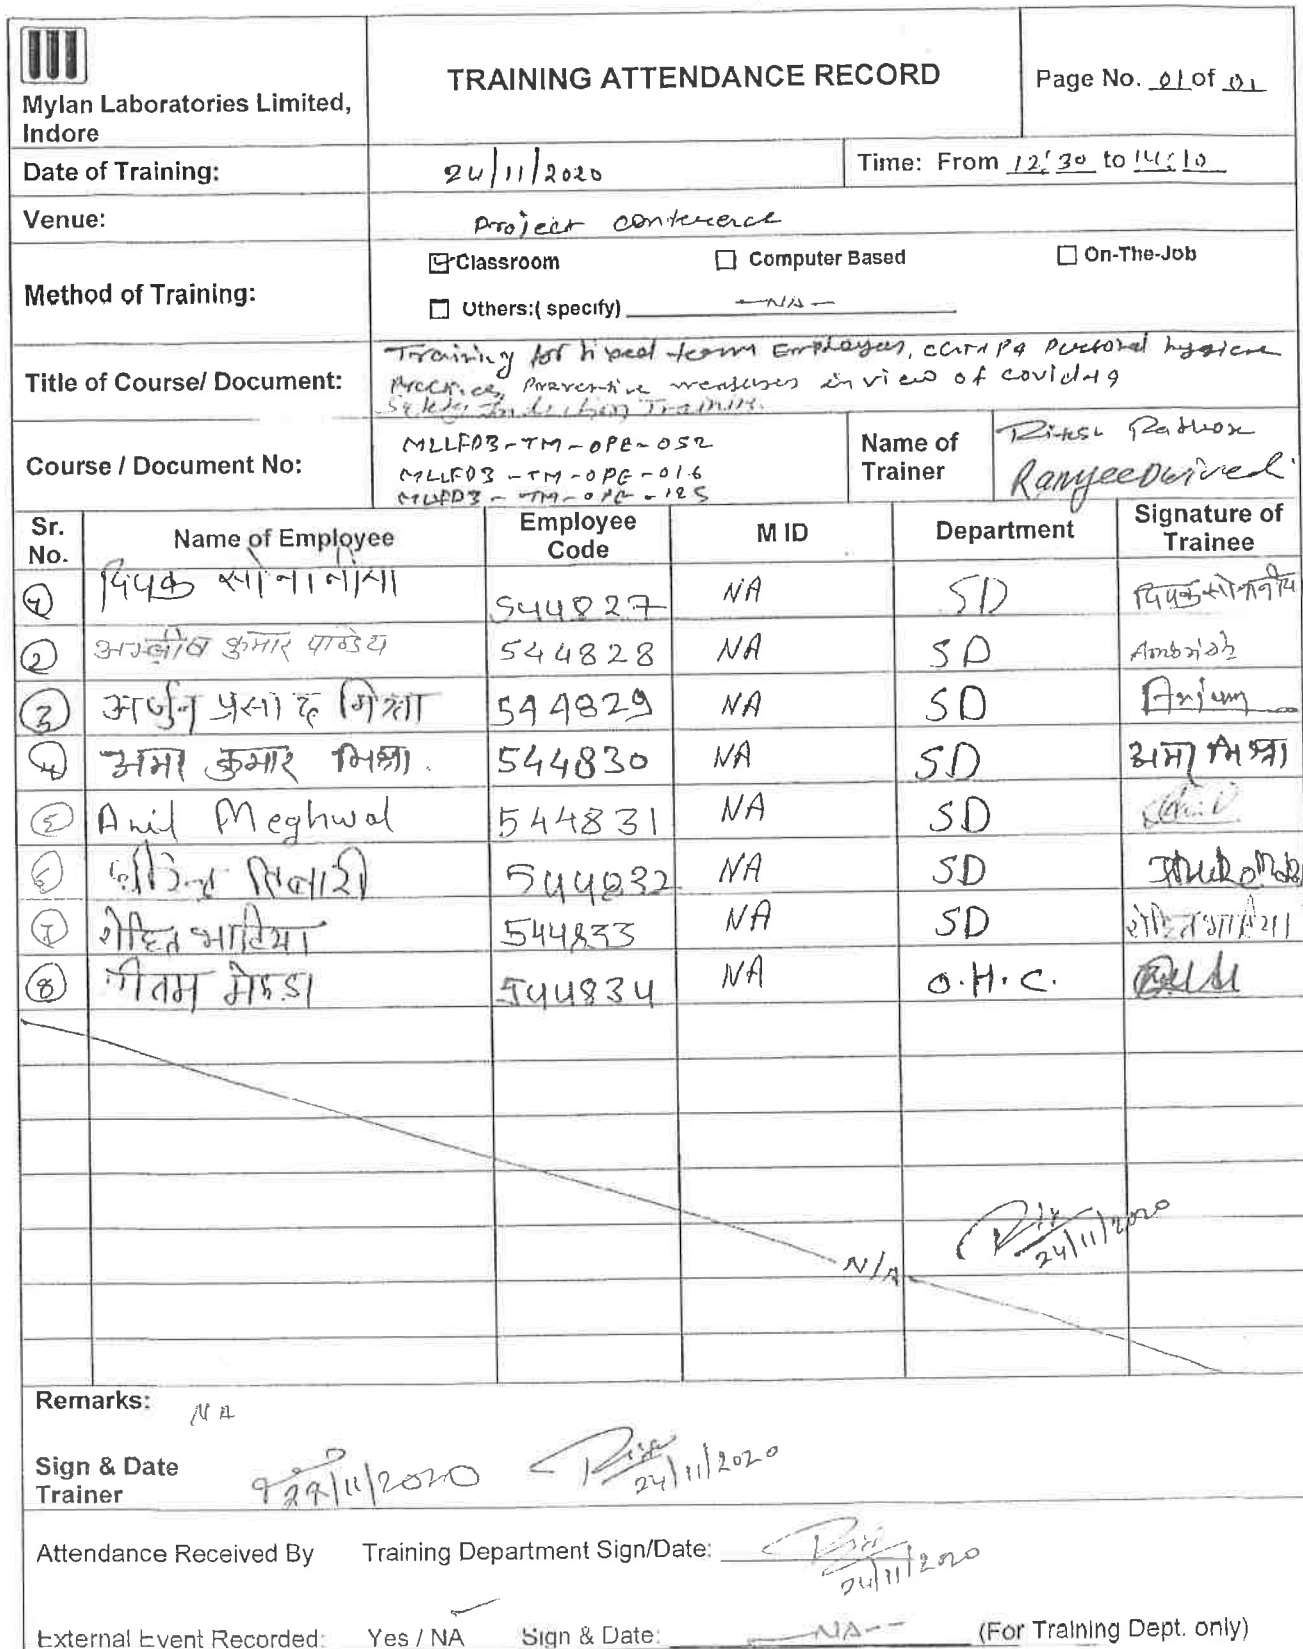 Mylan Laboratories Limited,
Indore
TRAINING ATTENDANCE RECORD
Page No. 01 of 01
Date of Training:
24/11/2020
Time: From 12:30 to 14:10
Venue:
Project conference
Method of Training:
Classroom
Computer Based
On-The-Job
Others:( specify) -NA-
Title of Course/ Document:
Training for fixed term Employees, Personal hygiene
Practices, Preventive measures in view of covid19
Safety Induction Training.
Course / Document No:
MLLFD3-TM-OPE-052
MLLFD3-TM-OPE-016
MLLFD3-TM-OPE-125
Name of
Trainer
Ritesh Rathore
Sr.
No.
Name of Employee
Employee
Code
M ID
Department
Signature of
Trainee
1 दिपक सोनानीया 544827 NA SD दिपक सोनानीया
2 कुमार पाण्डेय 544828 NA SD Ambrish
3 अर्जुन प्रसाद मिश्रा 544829 NA SD Arjun
4 अमर कुमार मिश्रा. 544830 NA SD अमर मिश्रा
5 Anil Meghwal 544831 NA SD
6 तिवारी 544832 NA SD
7 रोहित भाटिया 544833 NA SD रोहित भाटिया
8 मेहडा 544834 NA O.H.C.
N/A
24/11/2020
Remarks:
NA
Sign & Date
Trainer
24/11/2020
24/11/2020
Attendance Received By
Training Department Sign/Date:
24/11/2020
External Event Recorded:
Yes / NA
Sign & Date:
-NA-
(For Training Dept. only)